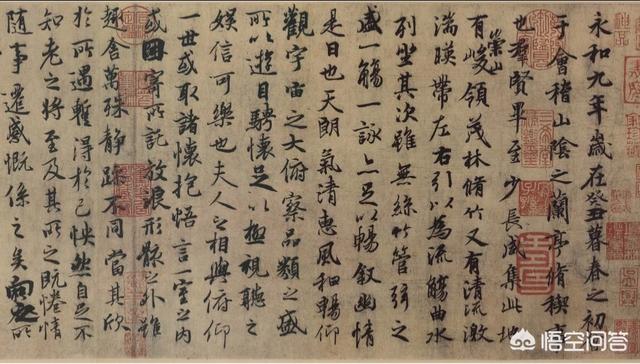 永和九年歲在癸丑暮春之初
于會稽山陰之蘭亭脩稧事
也羣賢畢至少長咸集此地
有崇山峻領茂林脩竹又有清流激
湍暎帶左右引以為流觴曲水
列坐其次雖無絲竹管弦之
盛一觴一詠亦足以暢敘幽情
是日也天朗氣清惠風和暢仰
觀宇宙之大俯察品類之盛
所以遊目騁懷足以極視聽之
娛信可樂也夫人之相與俯仰
一世或取諸懷抱悟言一室之內
或因寄所託放浪形骸之外雖
趣舍萬殊静躁不同當其欣
於所遇暫得於己怏然自足不
知老之將至及其所之既惓情
隨事遷感慨係之矣向之所
悟空问答